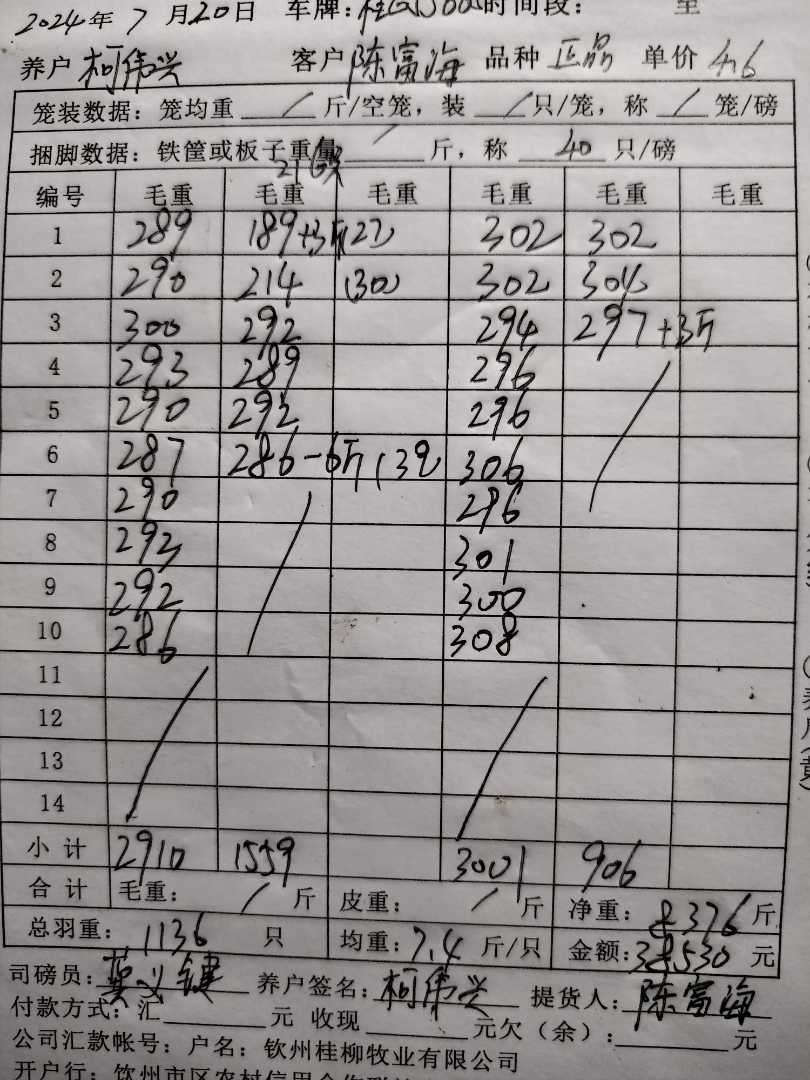 2024年 7 月20日 车牌: 时间段: 至
养户 柯伟兴 客户 陈富海 品种 正品 单价 4.6
笼装数据: 笼均重 / 斤/空笼, 装 / 只/笼, 称 / 笼/磅
捆脚数据: 铁筐或板子重量 / 斤, 称 40 只/磅
编号 毛重 毛重 毛重 毛重 毛重 毛重
1 289 189+3斤 (27) 302 302
2 290 214 (30) 302 304
3 300 292 294 297+3斤
4 293 289 296
5 290 292 296
6 287 286-6斤 (39) 306
7 290 296
8 293 301
9 292 300
10 286 308
11
12
13
14
小计 2910 1559 3001 906
合计 毛重: / 斤 皮重: / 斤 净重: 8376 斤
总羽重: 1136 只 均重: 7.4 斤/只 金额: 38530 元
司磅员: 养户签名: 柯伟兴 提货人: 陈富海
付款方式: 汇 元 收现 元欠(余): 元
公司汇款帐号: 户名: 钦州桂柳牧业有限公司
开户行: 钦州市区农村信用合作联社